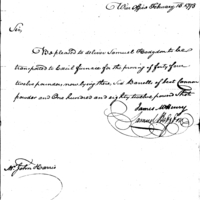 War Office February 18 1798
Sir,
Be pleased to deliver Samuel Hodgdon to be
transported to Cecil furnace for the proving of forty four
twelve pounders now lying there, Six Barrells of best Cannon
powder and One hundred and eighty twelve pound Shot
James McHenry
Samuel Hodgdon
Mr John Harris